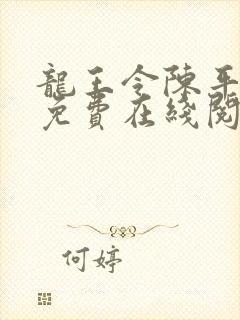 龍王令陳平
免費在綫閱
何婷